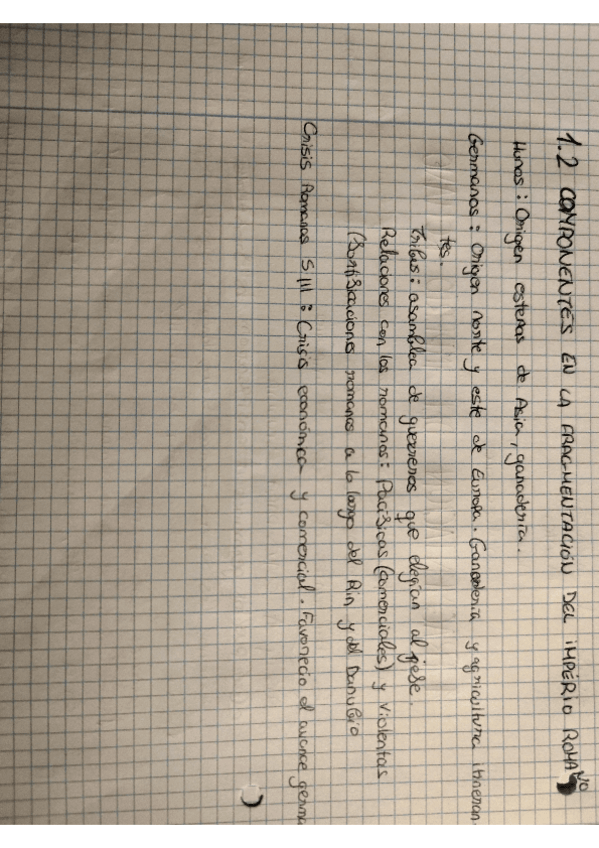 1.2 COMPONENTES EN LA FRAGMENTACIÓN DEL IMPÉRIO ROMANO
Hunos: Origen estepas de Asia, ganadería.
Germanos: Origen norte y este de Europa. Ganadería y agricultura itineran
tes.
Tribus: asamblea de guerreros que elegían al jefe.
Relaciones con los romanos: Pacíficas (comerciales) y violentas
(fortificaciones romanas a lo largo del Rin y del Danubio
Crisis Romanos S.III: Crisis económica y comercial. Favoreció el avance germa